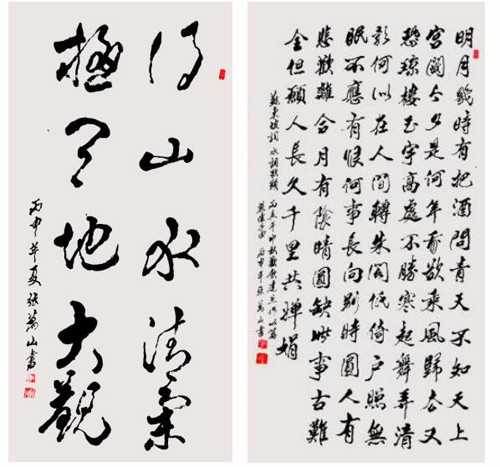 得山水清氣
極天地大觀
丙申年夏張萬山書
明月幾時有把酒問青天不知天上
宮闕今夕是何年我欲乘風歸去又
恐瓊樓玉宇高處不勝寒起舞弄清
影何似在人間轉朱閣低倚戶照無
眠不應有恨何事長向別時圓人有
悲歡離合月有陰晴圓缺此事古難
全但願人長久千里共嬋娟
蘇東坡詞水調歌頭丙辰中秋歡飲達旦作此篇
兼懷子由丙申年張萬山書